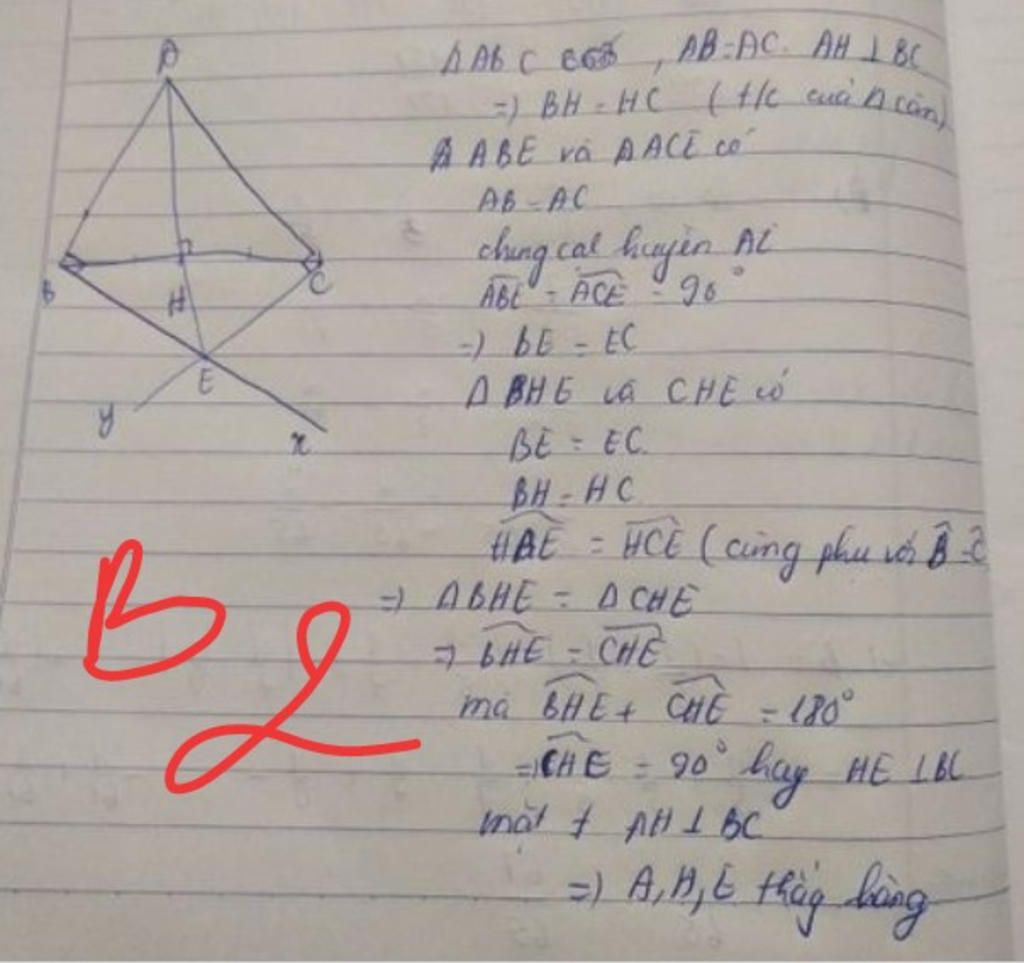 A
B
H
C
E
y
x
B2
ΔABC có, AB=AC. AH⊥BC
=) BH = HC (t/c của Δ cân)
ΔABE và ΔACE có
AB = AC
chung cạl huyền AE
ABE = ACE = 90°
=) BE = EC
Δ BHE và CHE có
BE = EC.
BH = HC
HBE = HCE (cùng phụ với B̂ = Ĉ
=) ΔBHE = ΔCHE
=) BHE = CHE
mà BHE + CHE = 180°
=) CHE = 90° hay HE ⊥BC
mặt ≠ AH ⊥ BC
=) A, H, E thẳg hàng